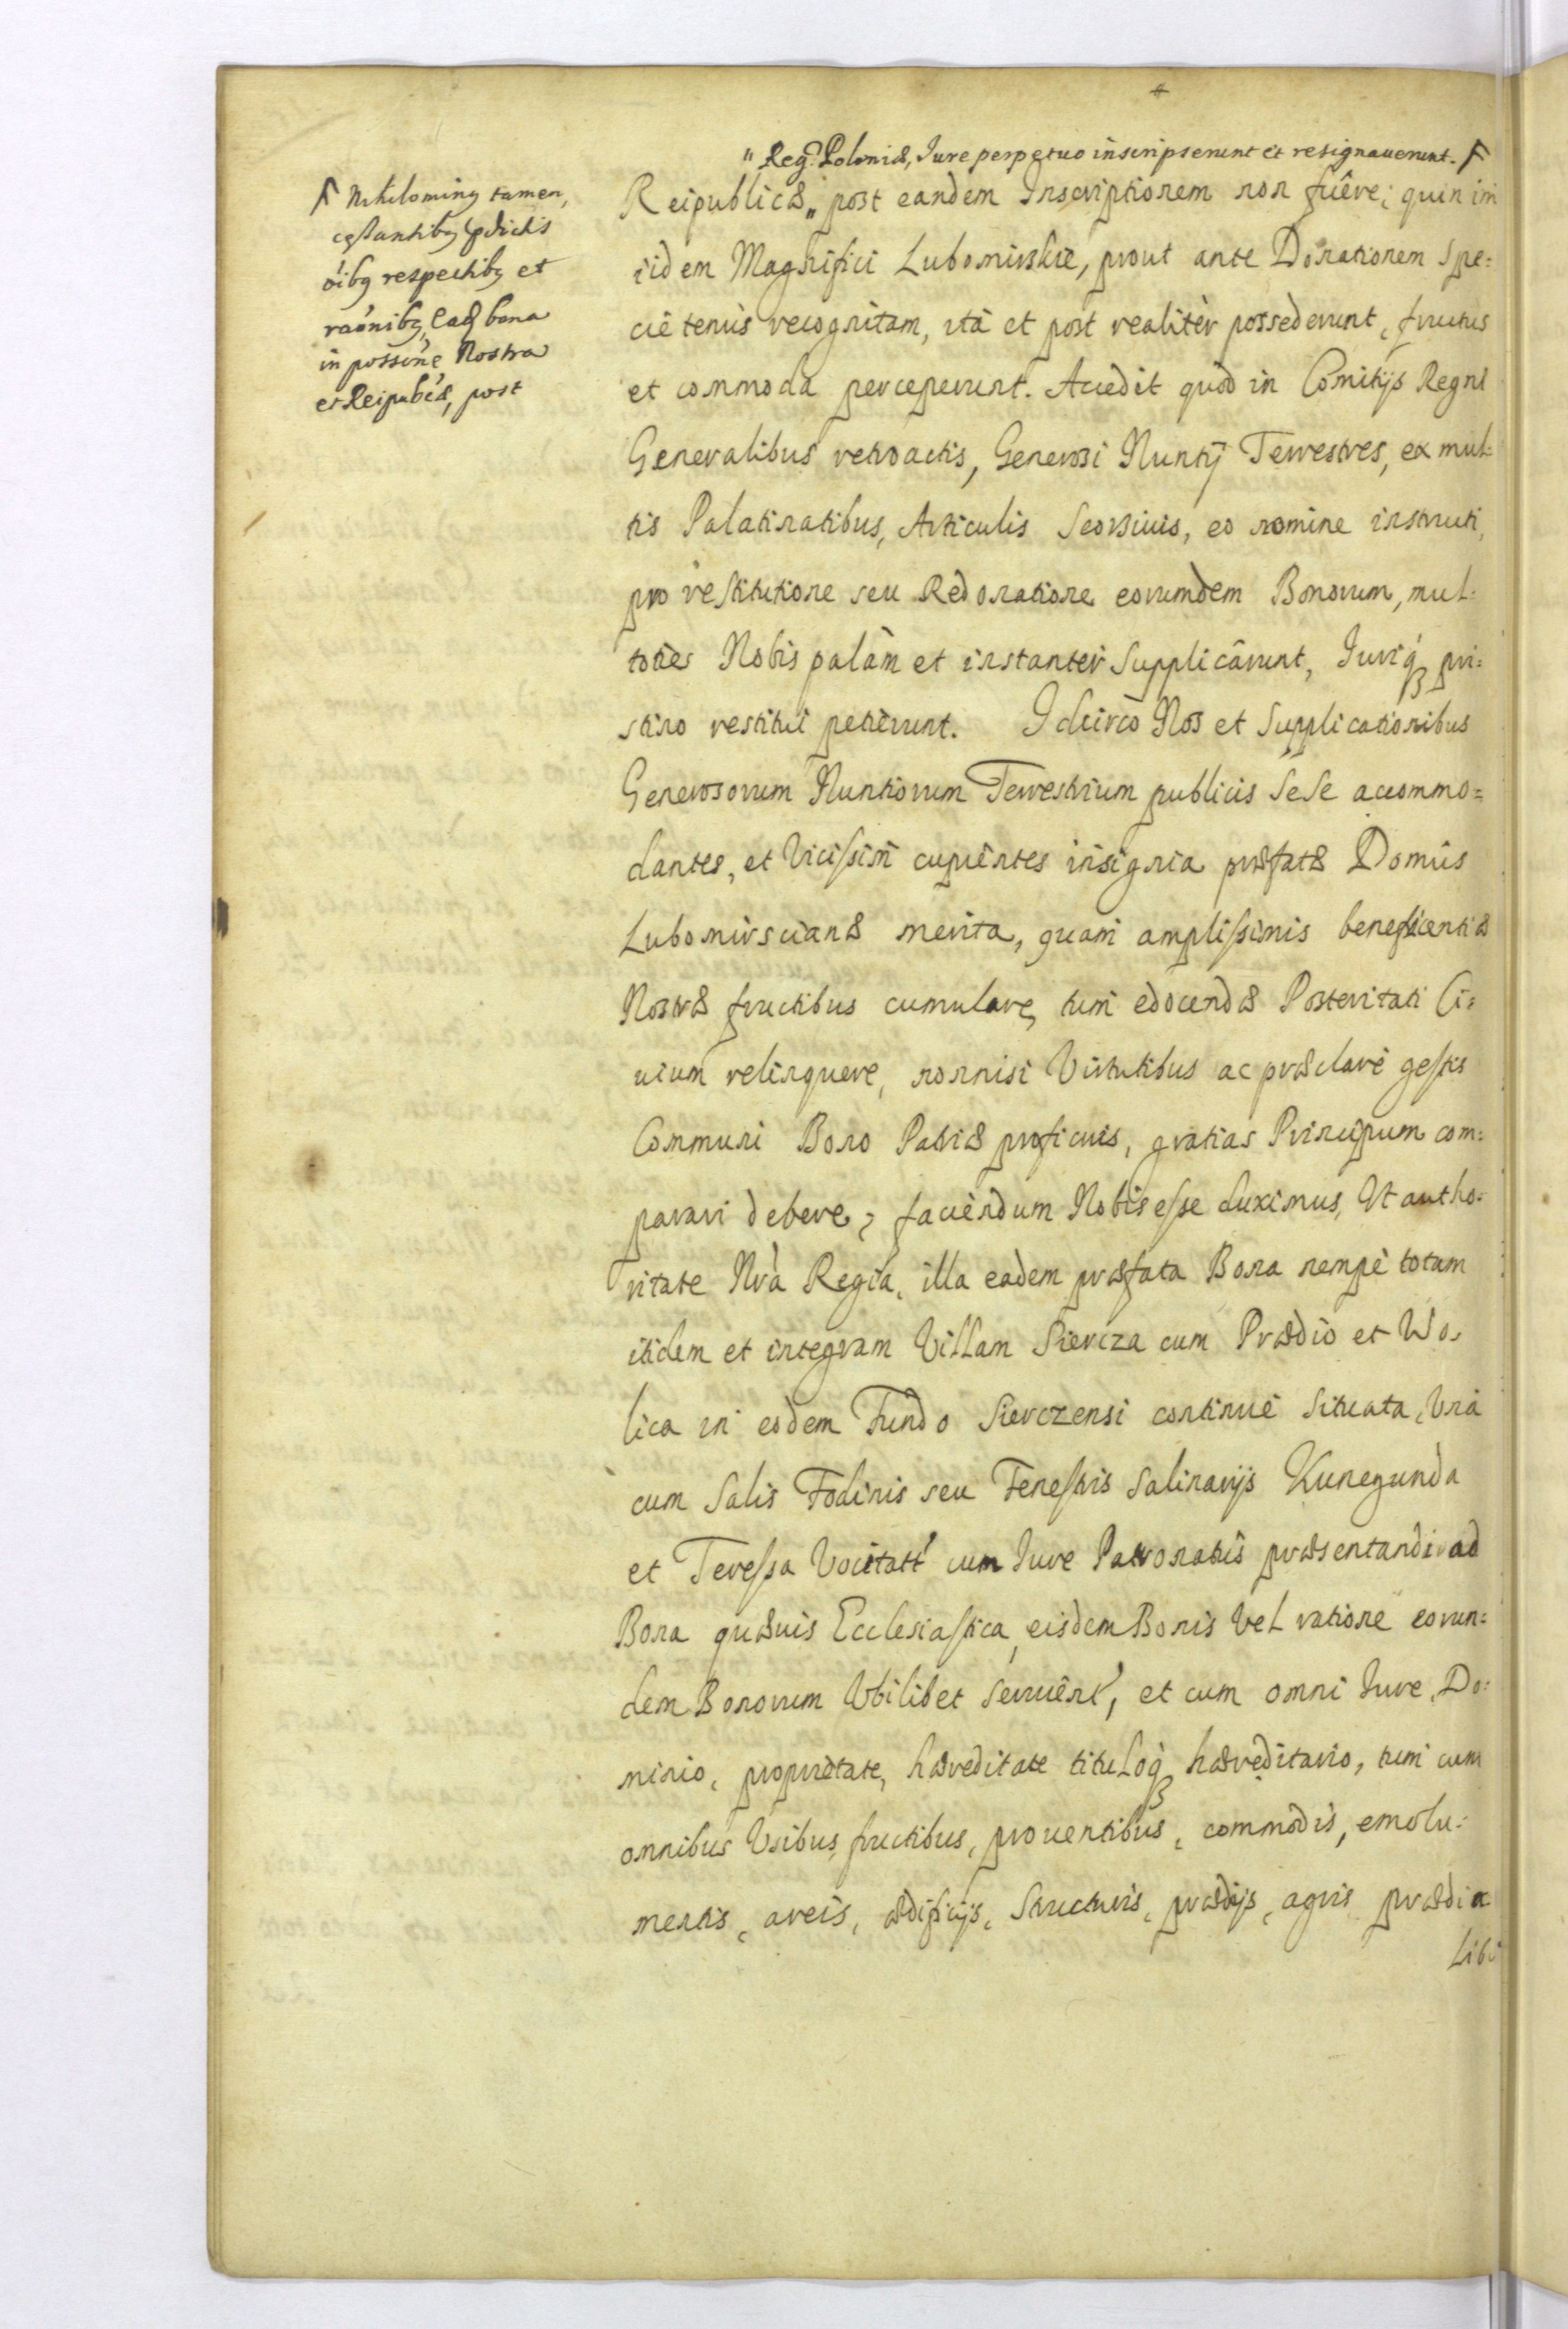 „ Reg: Poloniæ, Jure perpetuo inscripserunt et resignauerunt.
Nihilominꝰ tamen,
ceſsantibꝫ pdictis
oibꝫ respectibꝫ et
raonibꝫ, eadꝫ bona
in possone Nostra
et Reipubcæ, post
Reipublicæ „ post eandem Inscriptionem non fuêre; quin im
iidem Magnifici Lubomirskie, prout ante Donationem spe=
cie tenus recognitam, ità et post realitèr possederunt, fructus
et commoda perceperunt. Accedit quòd in Comitijs Regni
Generalibus retroactis, Generosi Nuntij Terrestres, ex mul=
tis Palatinatibus, Articulis Seorsiuis, eo nomine instructi,
pro reſtitutione seu Redonatione eorumdem Bonorum, mul=
toties Nobis palàm et instantèr Supplicârunt, Juriq́ꝫ pri=
stino restitui petierunt. Idcircò Nos et Supplicationibus
Generosorum Nuntiorum Terrestrium publicis SeSe accommo=
dantes, et Viciſsim cupientes insignia præfatæ Domûs
Lubomirscianæ merita, quam ampliſsimis beneficentiæ
Nostræ fructibus cumulare, tum edocendæ Posteritati Ci=
uium relinquere, nonnisi Virtutibus ac præclarè geſtis
Communi Bono Patriæ proficuis, gratias Principum com=
parari debere; faciendum Nobis eſse duximus, Vt autho=
ritate Nrà Regia, illa eadem præfata Bona nempè totam
itidem et integram Villam Siercza cum Prædio et Wo=
lica in eodem Fundo Sierczensi continuè Situata, Vnà
cum Salis Fodinis seu Feneſtris Salinarijs Kunegunda
et Tereſsa Vocitatt́ cum Jure Patronatûs præsentandi ad
Bona quæuis Eccleſiaſtica, eisdem Bonis Vel ratione eorun=
dem Bonorum Vbilibet Seruient́, et cum omni Jure, Do=
minio, proprietate, hæreditate tituloq́ꝫ hæreditario, tum cum
omnibus Vsibus, fructibus, prouentibus, commodis, emolu=
mentis, areis, ædificijs, Structuris, prædijs, agris prædia
Lib